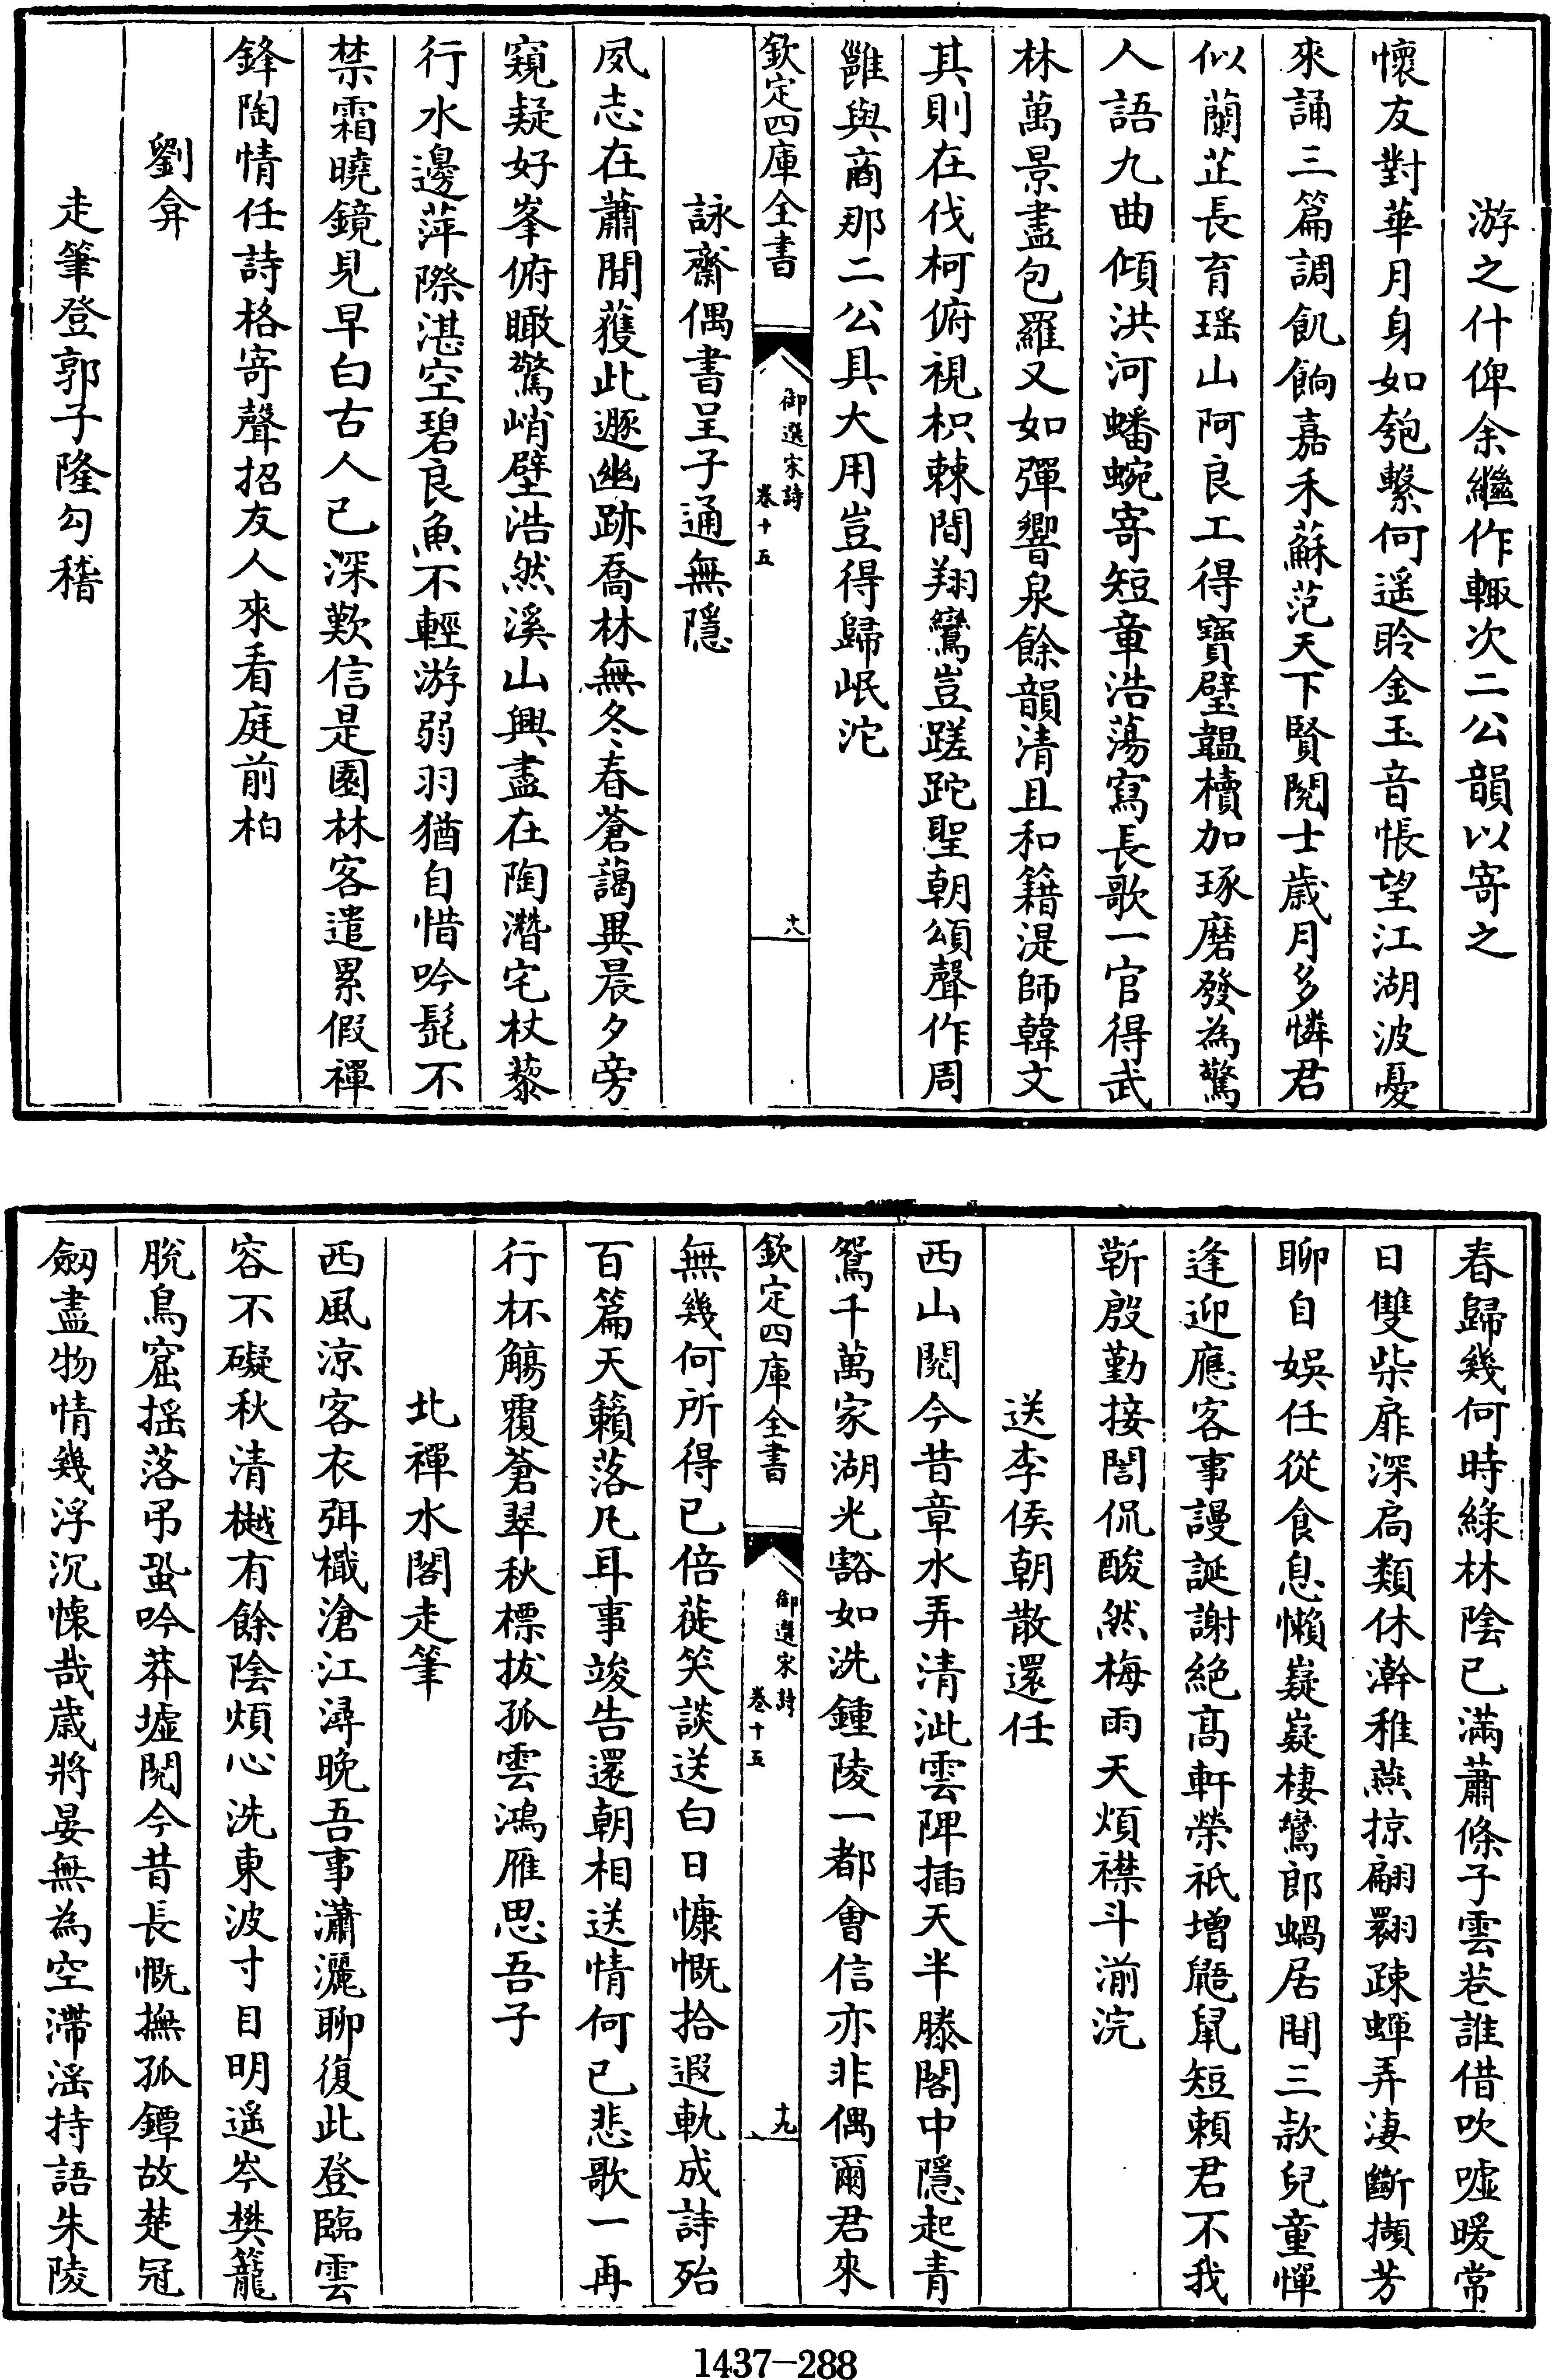 游之什俾余繼作輙次二公韻以寄之
懷友對華月身如匏繫何遥聆金玉音悵望江湖波憂
來誦三篇調飢餉嘉禾蘇范天下賢閱士歲月多憐君
似蘭芷長育瑶山阿良工得寶璧韞櫝加琢磨發為驚
人語九曲傾洪河蟠蜿寄短章浩蕩寫長歌一官得武
林萬景盡包羅又如彈響泉餘韻清且和籍湜師韓文
其則在伐柯俯視枳棘間翔鸞豈蹉跎聖朝頌聲作周
雝與商那二公具大用豈得歸岷沱
欽定四庫全書
御選宋詩
卷十五
十八
詠齋偶書呈子通無隱
夙志在蕭閒蒦此遯幽跡喬林無冬春蒼藹異晨夕旁
窺疑好峯俯瞰驚峭壁浩然溪山興盡在陶濳宅杖藜
行水邊萍際湛空碧良魚不輕游弱羽猶自惜吟髭不
禁霜曉鏡見早白古人已深歎信是園林客遣累假禪
鋒陶情任詩格寄聲招友人來看庭前柏
劉弇
走筆登郭子隆勾稽
春歸幾何時綠林陰已滿蕭條子雲巷誰借吹噓暖常
日雙柴扉深扃類休澣稚燕掠翩翾疎蟬弄淒斷擷芳
聊自娛任從食息懶嶷嶷棲鸞郎蝸居閒三款兒童憚
逢迎應客事謾誕謝絕髙軒榮祇增鼯鼠短頼君不我
靳殷勤接誾侃酸然梅雨天煩襟斗湔浣
送李侯朝散還任
西山閱今昔章水弄清泚雲陴插天半滕閣中隱起青
鴛千萬家湖光豁如洗鍾陵一都會信亦非偶爾君來
欽定四庫全書
御選宋詩
卷十五
十九
無幾何所得已倍蓰笑談送白日慷慨拾遐軌成詩殆
百篇天籟落凡耳事竣告還朝相送情何已悲歌一再
行杯觴覆蒼翠秋標拔孤雲鴻雁思吾子
北禪水閣走筆
西風涼客衣弭檝滄江潯晚吾事瀟灑聊復此登臨雲
容不礙秋清樾有餘陰煩心洗東波寸目明遥岑樊籠
脫鳥窟摇落弔蛩吟莽墟閱今昔長慨撫孤鐔故楚冠
劒盡物情幾浮沉懐哉歲將晏無為空滯滛持語朱陵
1437—288